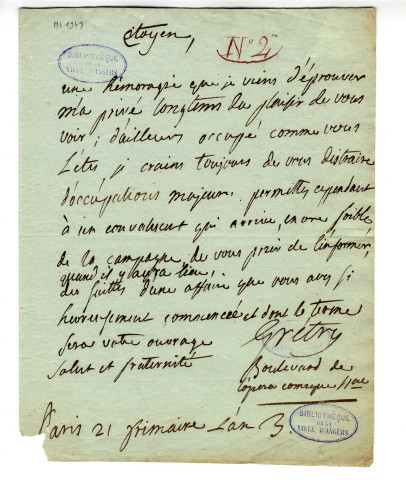 Ms 1949
Citoyen,
N° 2
BIBLIOTHÈQUE
DE LA
VILLE D'ANGERS
une hémoragie que je viens d'éprouver
m'a privé longtems du plaisir de vous
voir; d'ailleurs occupé comme vous
l'êtes, je crains toujours de vous distraire
d'occupations majeurs. permettés cependant
à un convalescent qui arrive, encore foible
de la campagne, de vous prier de l'informer,
quand il y aura lieu,
des suittes d'une affaire que vous avés si
heureusement commencée et dont le terme
sera votre ouvrage
Grétry
salut et fraternité
Boulevard de
l'opera comique
Paris 21 frimaire l'an 3.
BIBLIOTHÈQUE
DE LA
VILLE D'ANGERS